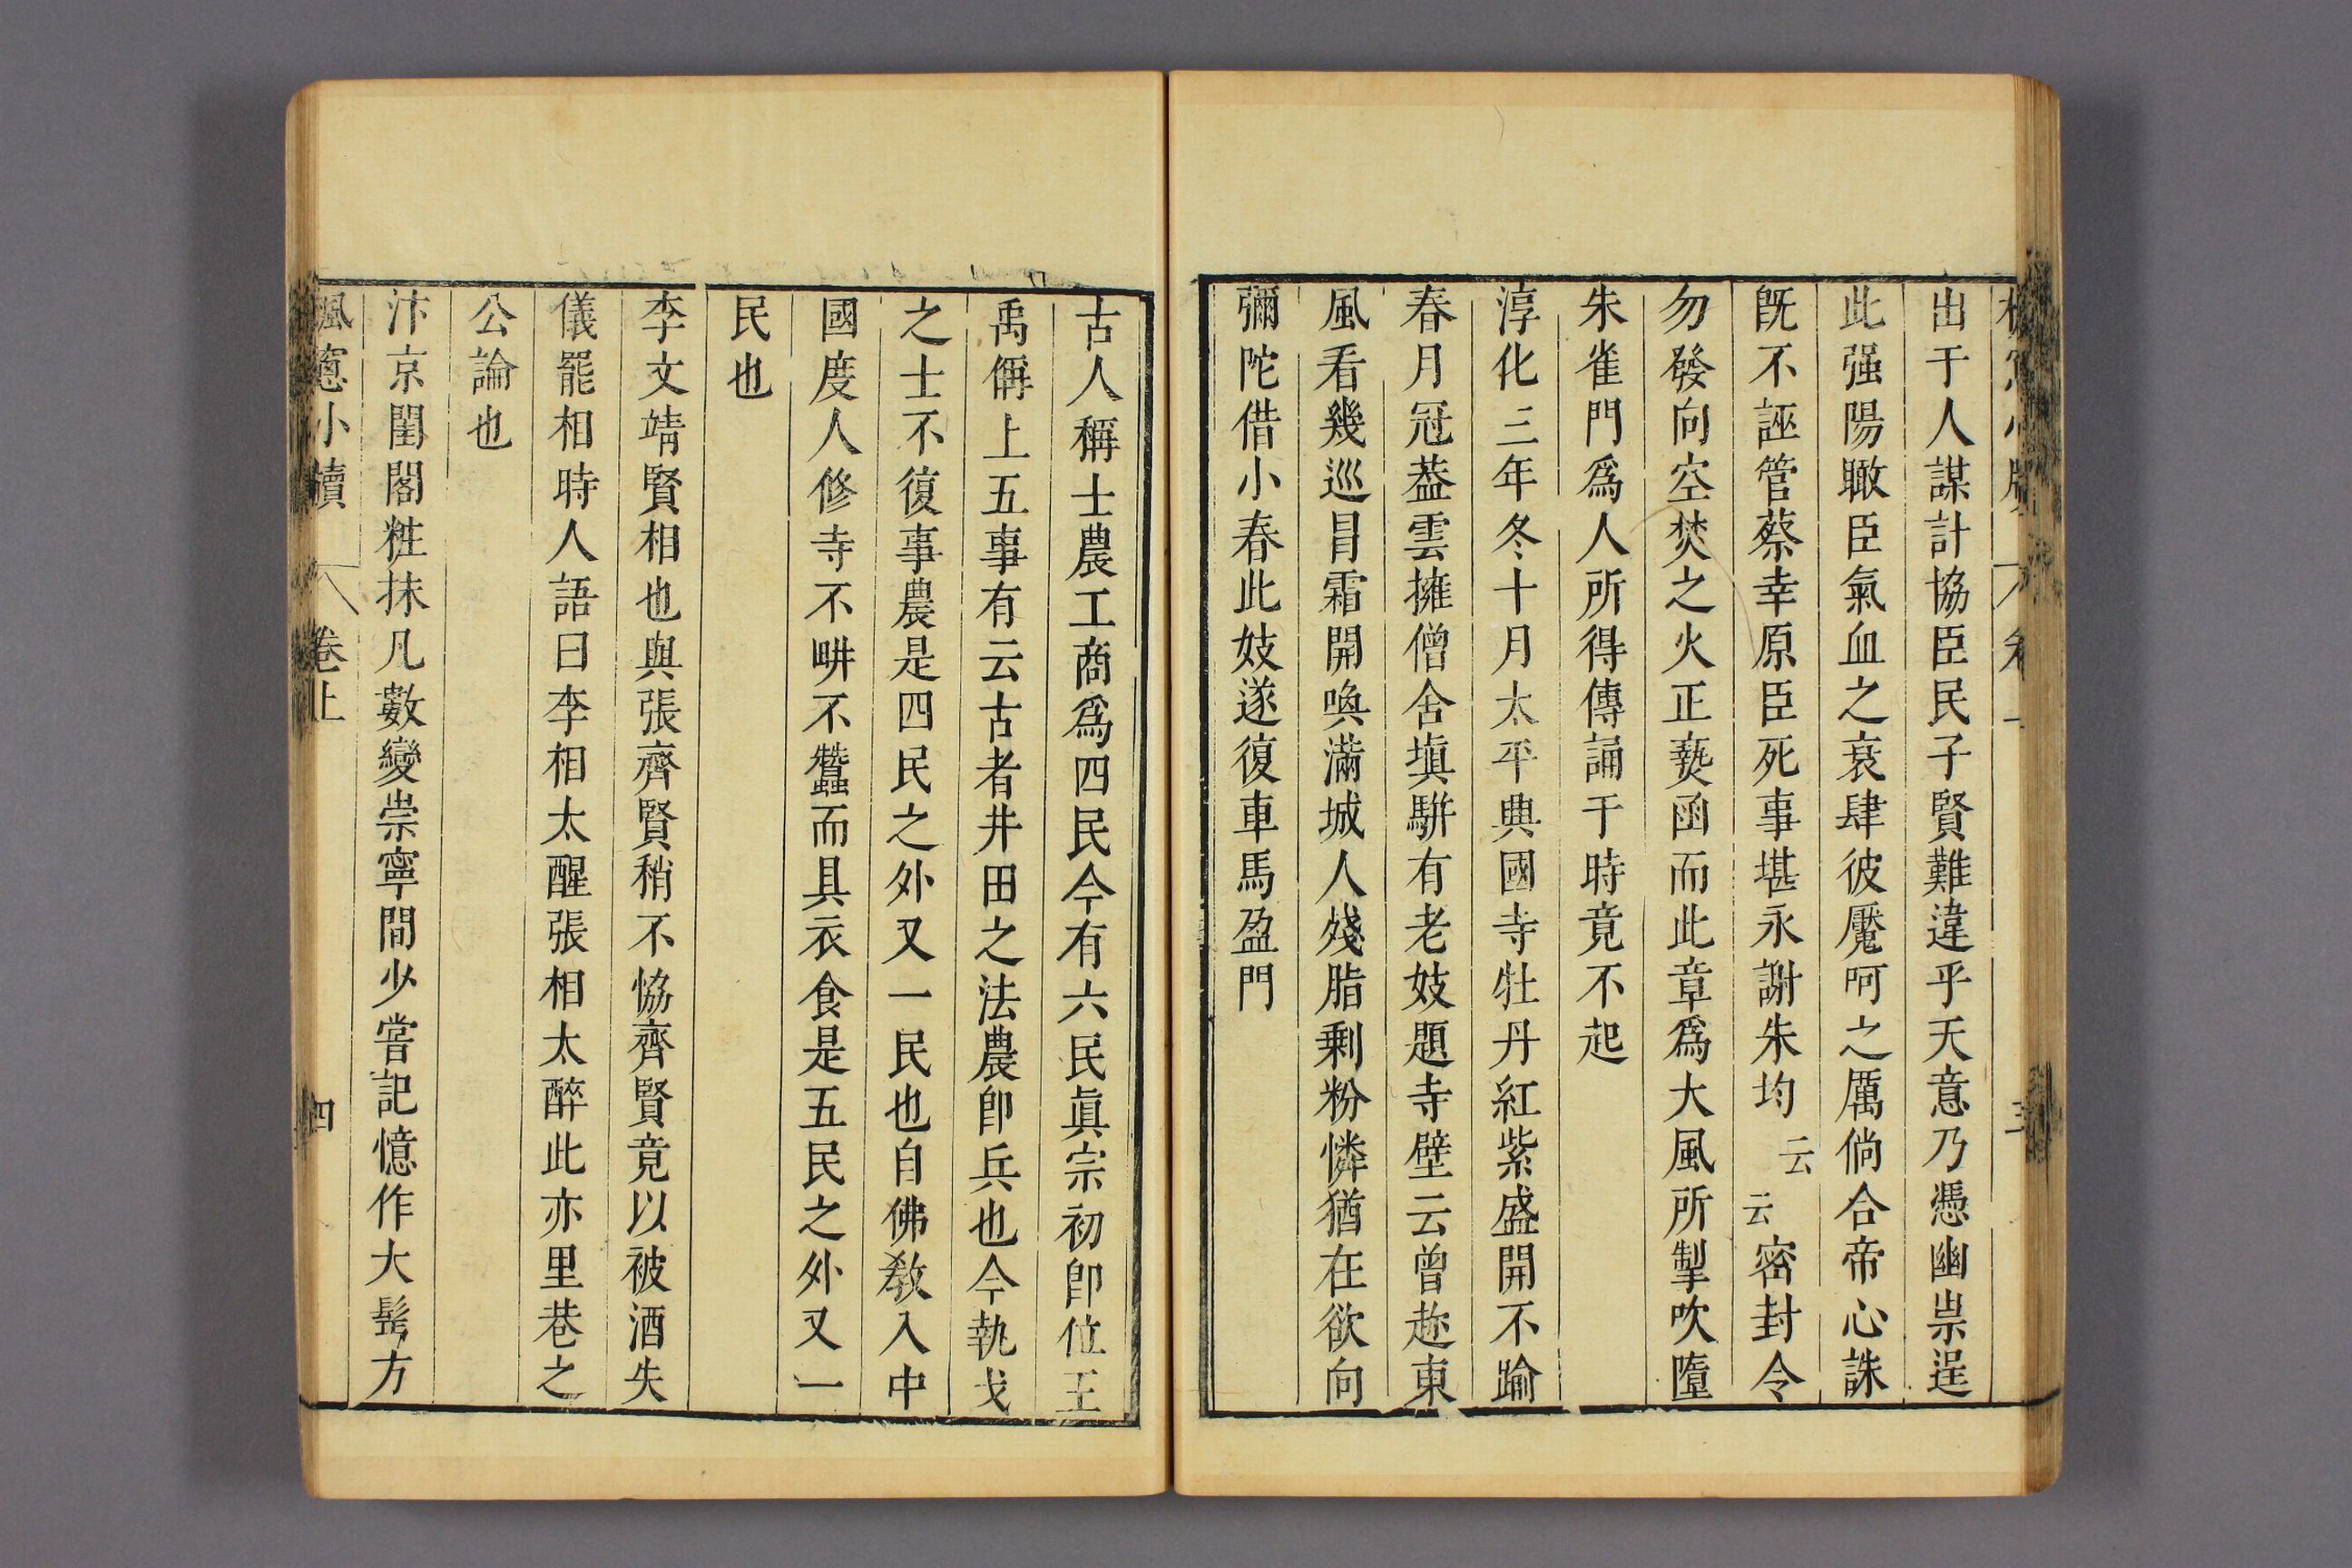 出于人謀計協臣民子賢難違乎天意乃憑幽祟逞
此强陽瞰臣氣血之衰肆彼魘呵之厲倘合帝心誅
旣不誣管蔡幸原臣死事堪永謝朱均云云密封令
勿發向空焚之火正爇函而此章爲大風所掣吹墮
朱雀門爲人所得傳誦于時竟不起
淳化三年冬十月太平典國寺牡丹紅紫盛開不踰
春月冠葢雲擁僧舍塡駢有老妓題寺壁云曾趂東
風看幾巡冐霜開喚滿城人殘脂剩粉憐猶在欲向
彌陀借小春此妓遂復車馬盈門
古人稱士農工商爲四民今有六民眞宗初卽位王
禹偁上五事有云古者井田之法農卽兵也今執戈
之士不復事農是四民之外又一民也自佛教入中
國度人修寺不畊不蠶而具衣食是五民之外又一
民也
李文靖賢相也與張齊賢稍不恊齊賢竟以被酒失
儀罷相時人語曰李相太醒張相太醉此亦里巷之
公論也
汴京閨閣粧抹凡數變崇寧間少嘗記憶作大髩方
楓窻小牘 卷上 四